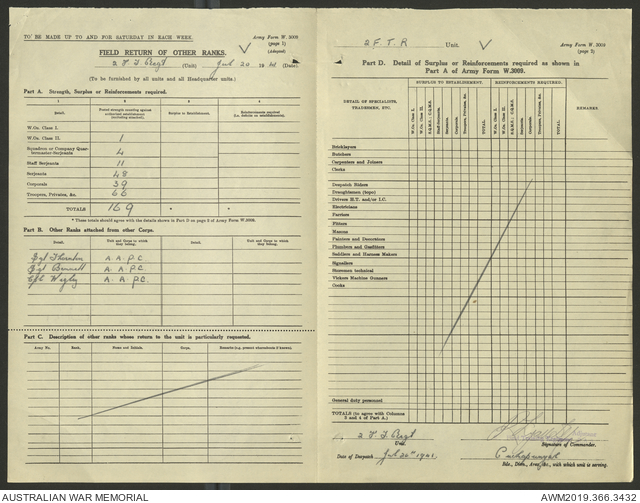 TO BE MADE UP TO AND FOR SATURDAY IN EACH WEEK.
Army Form W. 3009
(page 1)
(Adapted)
FIELD RETURN OF OTHER RANKS.
2 F. T. Regt (Unit) 20 1941 (Date)
(To be furnished by all units and all Headquarter units.)
Part A. Strength, Surplus or Reinforcements required.
1 2 3 4
Detail. Posted strength counting against authorised establishment (including attached). Surplus to Establishment. Reinforcements required
W.Os. Class I.
W.Os. Class II. 1
Squadron or Company Quartermaster-Serjeants 4
Staff Serjeants 11
Serjeants 48
Corporals 39
Troopers, Privates, &c. 66
TOTALS 169 * *
* These totals should agree with the details shown in Part D on page 2 of Army Form W.3009.
Part B. Other Ranks attached from other Corps.
Detail. Unit and Corps to which they belong. Detail. Unit and Corps to which they belong.
Sgt Thornton A. A. P. C.
Sgt Bennett A. A. P. C.
Cpl Wigley A. A. P. C.
Part C. Description of other ranks whose return to the unit is particularly requested.
Army No. Rank. Name and Initials. Corps. Remarks (e.g. present whereabouts if known).
2 F. T. R Unit.
Army Form W. 3009
(page 2)
Part D. Detail of Surplus or Reinforcements required as shown in
Part A of Army Form W.3009.
DETAIL OF SPECIALISTS, TRADESMEN, ETC.
SURPLUS TO ESTABLISHMENT. REINFORCEMENTS REQUIRED.
REMARKS.
W.Os. Class I. W.Os. Class II. S.Q.M.S.; C.Q.M.S. Staff Serjeants. Serjeants. Corporals. Troopers, Privates, &c. TOTAL. W.Os. Class I. W.Os. Class II. S.Q.M.S.; C.Q.M.S. Staff Serjeants. Serjeants. Corporals. Troopers, Privates, &c. TOTAL.
Bricklayers
Butchers
Carpenters and Joiners
Clerks
Despatch Riders
Draughtsmen (topo)
Drivers H.T. and/or I.C.
Electricians
Farriers
Fitters
Masons
Painters and Decorators
Plumbers and Gasfitters
Saddlers and Harness Makers
Signallers
Storemen technical
Vickers Machine Gunners
Cooks
General duty personnel
TOTALS (to agree with Columns 3 and 4 of Part A.)
2 F. T. Regt
Unit.
Signature of Commander.
Date of Despatch 20th 1941.
Puckapunyal
Bde., Divn., Area, &c., with which unit is serving.
AUSTRALIAN WAR MEMORIAL
AWM2019.366.3432